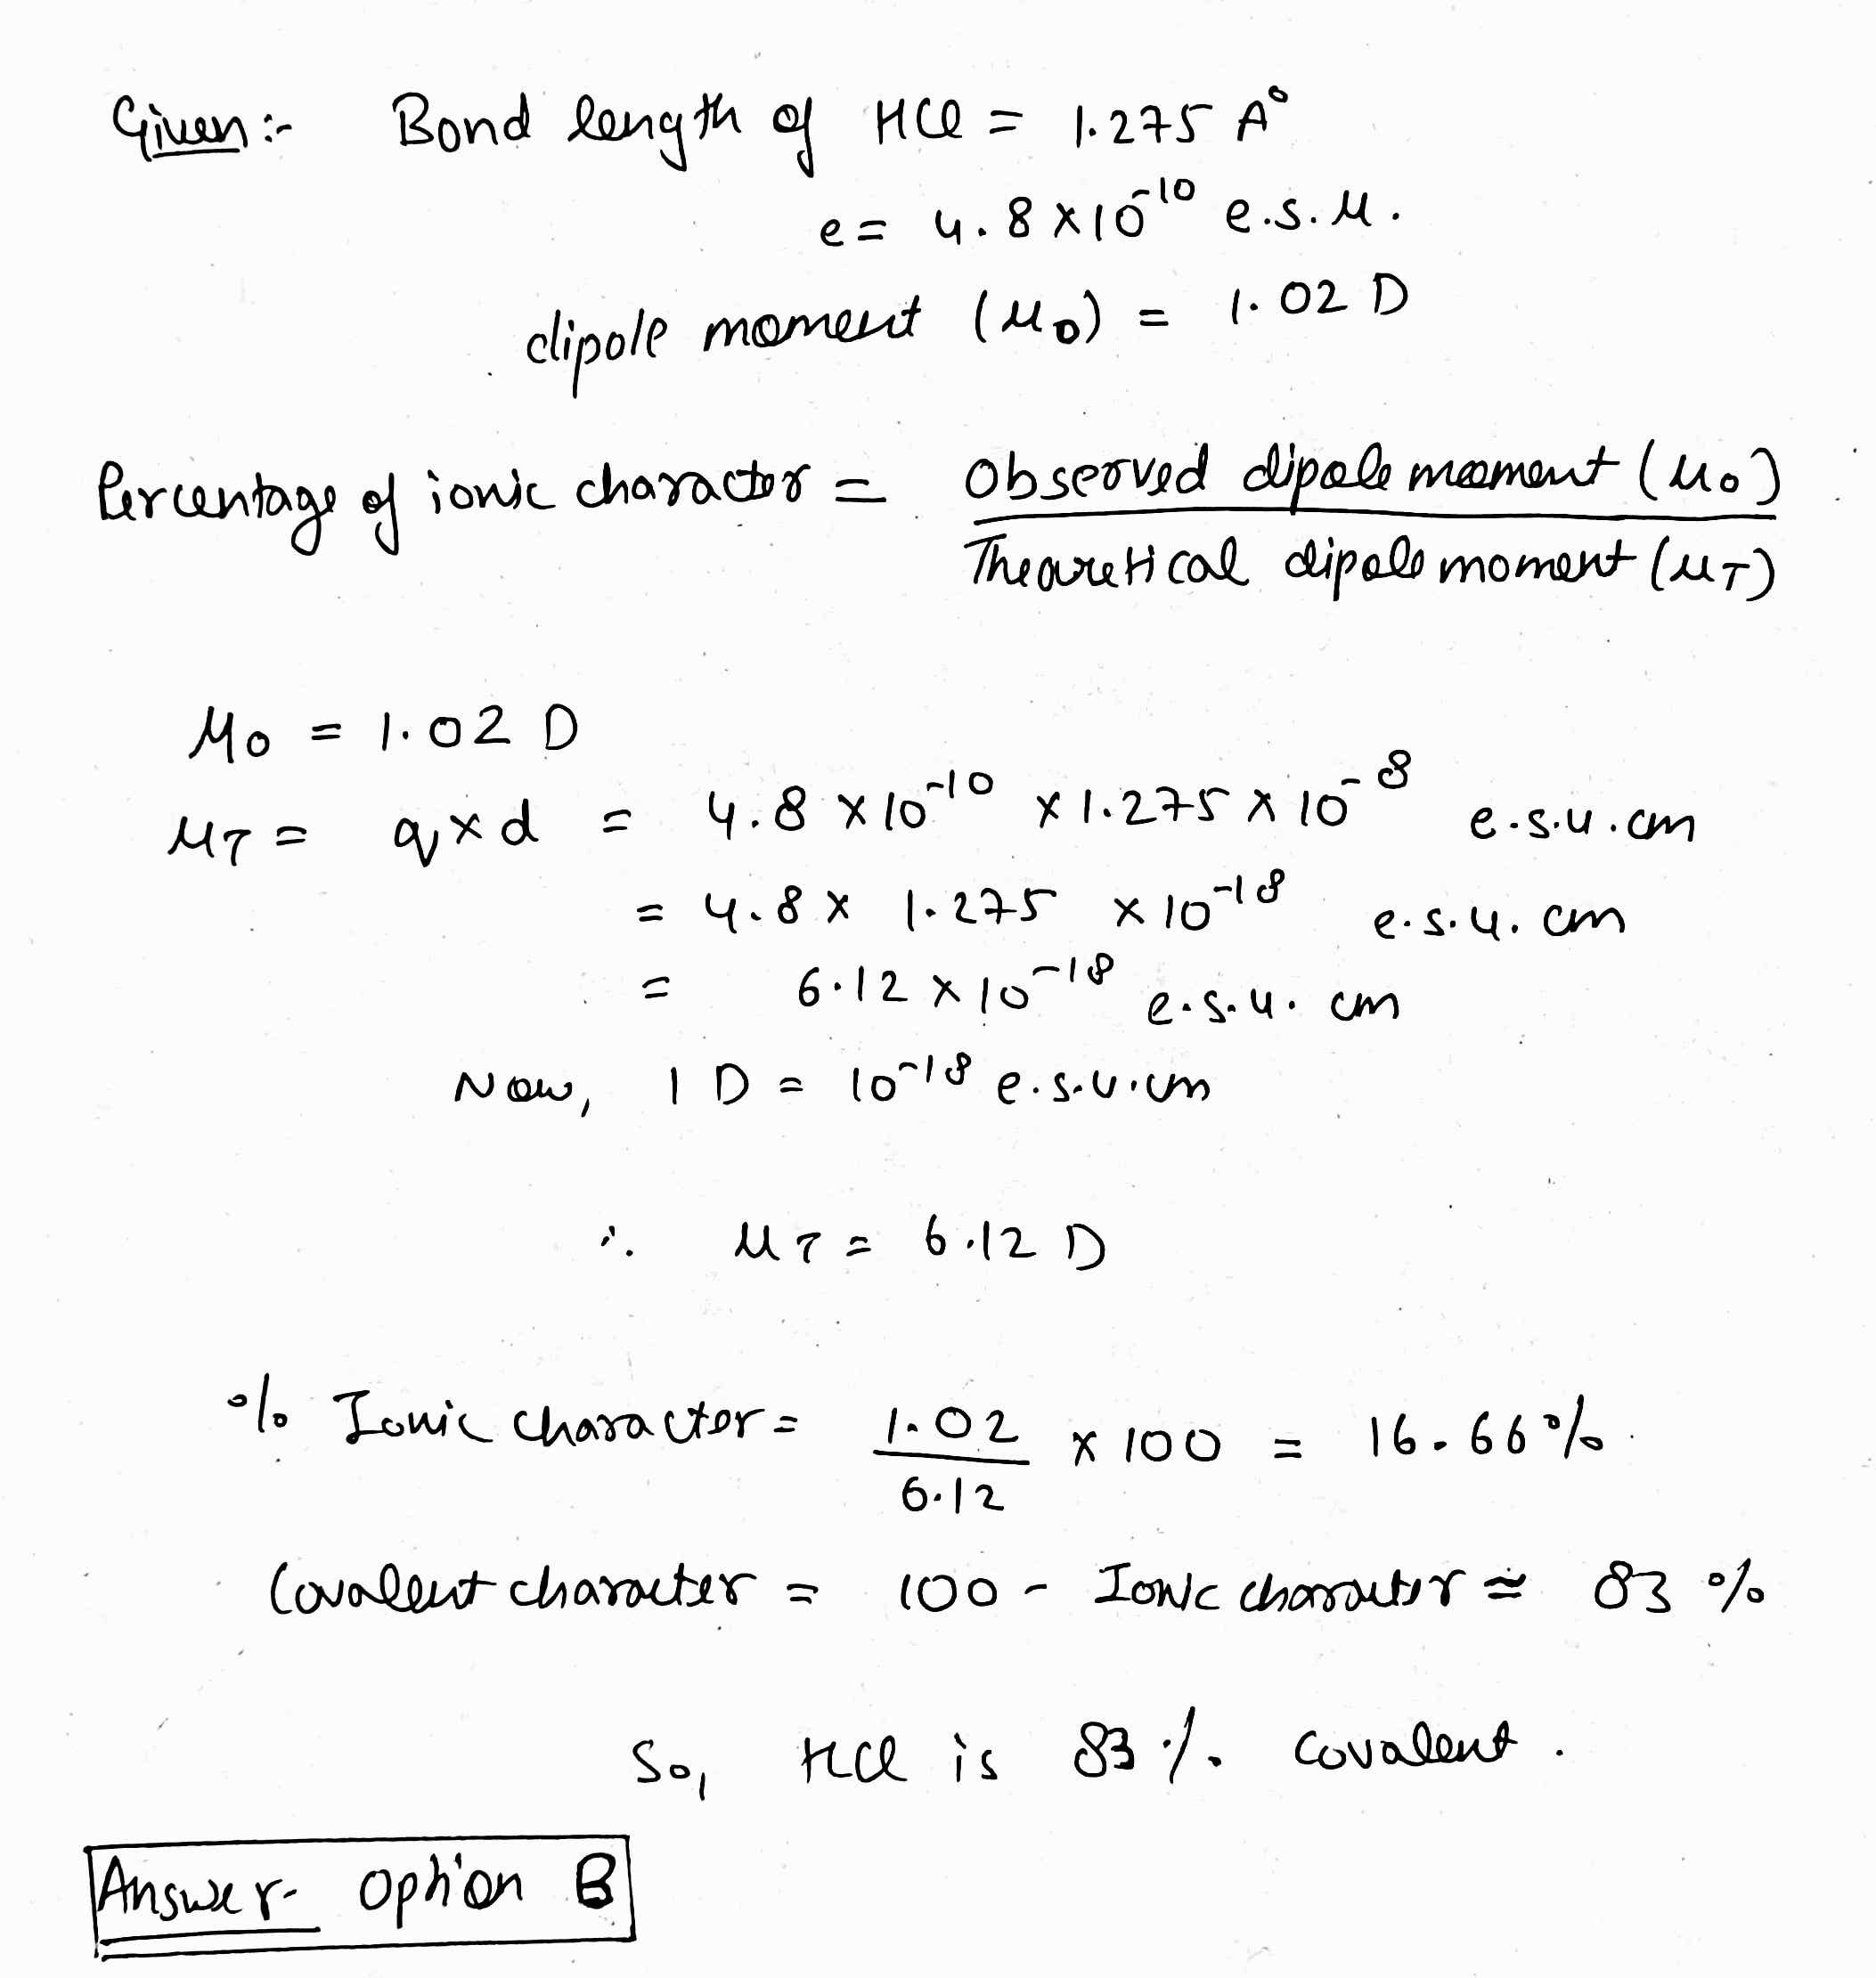 Given :- Bond length of HCl = 1.275 A°
e = 4.8 × 10⁻¹⁰ e.s.u.
dipole moment (μ₀) = 1.02 D
Percentage of ionic character = Observed dipole moment (μ₀)
Theoretical dipole moment (μT)
μ₀ = 1.02 D
μT = q × d = 4.8 × 10⁻¹⁰ × 1.275 × 10⁻⁸ e.s.u. cm
= 4.8 × 1.275 × 10⁻¹⁸ e.s.u. cm
= 6.12 × 10⁻¹⁸ e.s.u. cm
Now, 1 D = 10⁻¹⁸ e.s.u. cm
∴ μT = 6.12 D
% Ionic character = 1.02 × 100 = 16.66 %
6.12
Covalent character = 100 - Ionic character ≈ 83 %
So, HCl is 83 % covalent.
Answer - Option B